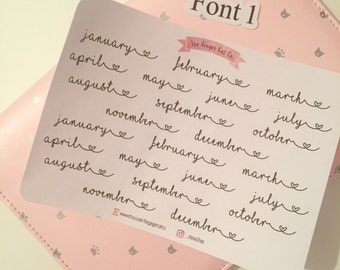 Font 1
The Ginger Cat Co.
january february march
april may june july
august september october
november december
january february march
april may june july
august september october
november december